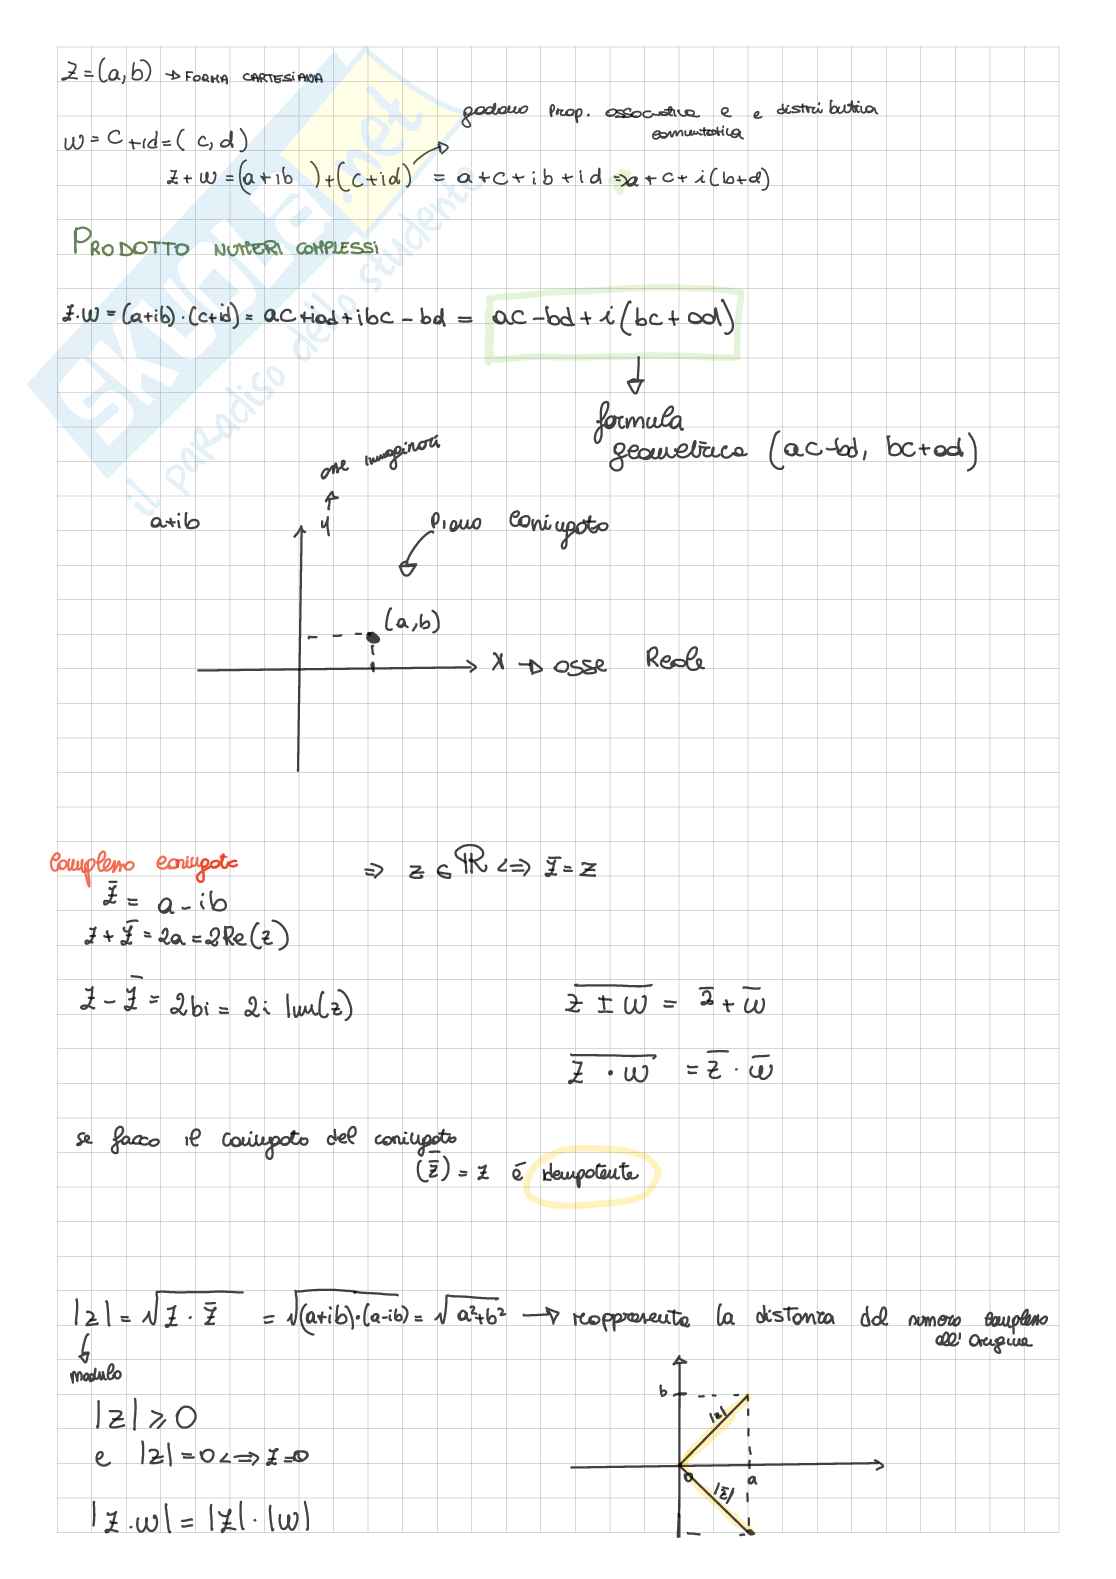 z = (a, b) → FORMA CARTESIANA
godono Prop. associativa e e distributiva
comuntativa
w = c + id = ( c, d )
z + w = (a + ib ) + (c + id) = a + c + ib + id => a + c + i (b+d)
PRODOTTO NUMERI COMPLESSI
z·w = (a+ib) · (c+id) = ac + iad + ibc - bd = ac - bd + i (bc + ad)
formula
geometrica (ac-bd, bc+ad)
asse immaginari
y
a+ib
Piano coniugato
(a,b)
x → asse Reale
Complesso coniugato
⇒ z ∈ ℝ <=> z̄ = z
z̄ = a - ib
z + z̄ = 2a = 2Re(z)
z - z̄ = 2bi = 2i Im(z)
\overline{z ± w} = z̄ + w̄
\overline{z · w} = z̄ · w̄
se faccio il coniugato del coniugato
(z̄̄) = z é idempotente
|z| = √z · z̄ = √(a+ib)·(a-ib) = √a²+b² → rappresenta la distanza dal numero complesso
all' origine
modulo
b
|z|
|z| ⩾ 0
e |z| = 0 <=> z=0
0
a
|z̄|
|z·w| = |z| · |w|
SKUOLA.net
il paradiso dello studente